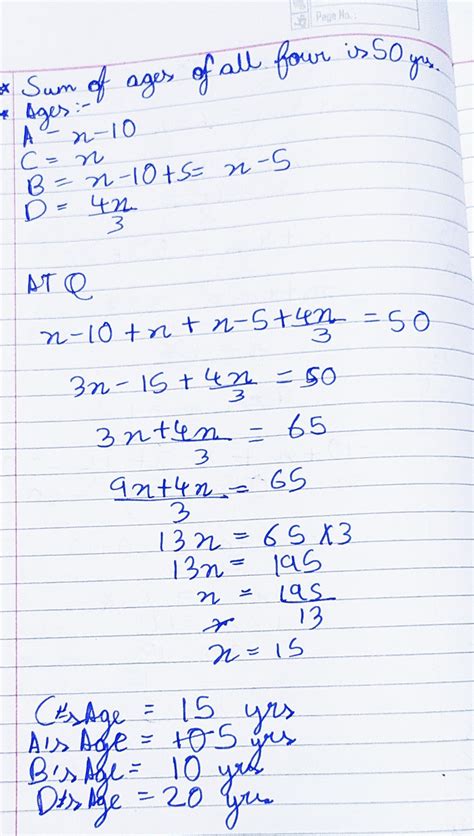 Page No.:
* Sum of ages of all four is 50 yrs.
* Ages:-
A - n-10
C = n
B = n-10+5= n-5
D = 4n/3
AT Q
n-10+n+n-5+4n/3 = 50
3n-15+4n/3 = 50
3n+4n/3 = 65
9n+4n/3 = 65
13n = 65 X3
13n = 195
n = 195/13
n = 15
C's Age = 15 yrs
A's Age = 5 yrs
B's Age = 10 yrs
D's Age = 20 yrs.